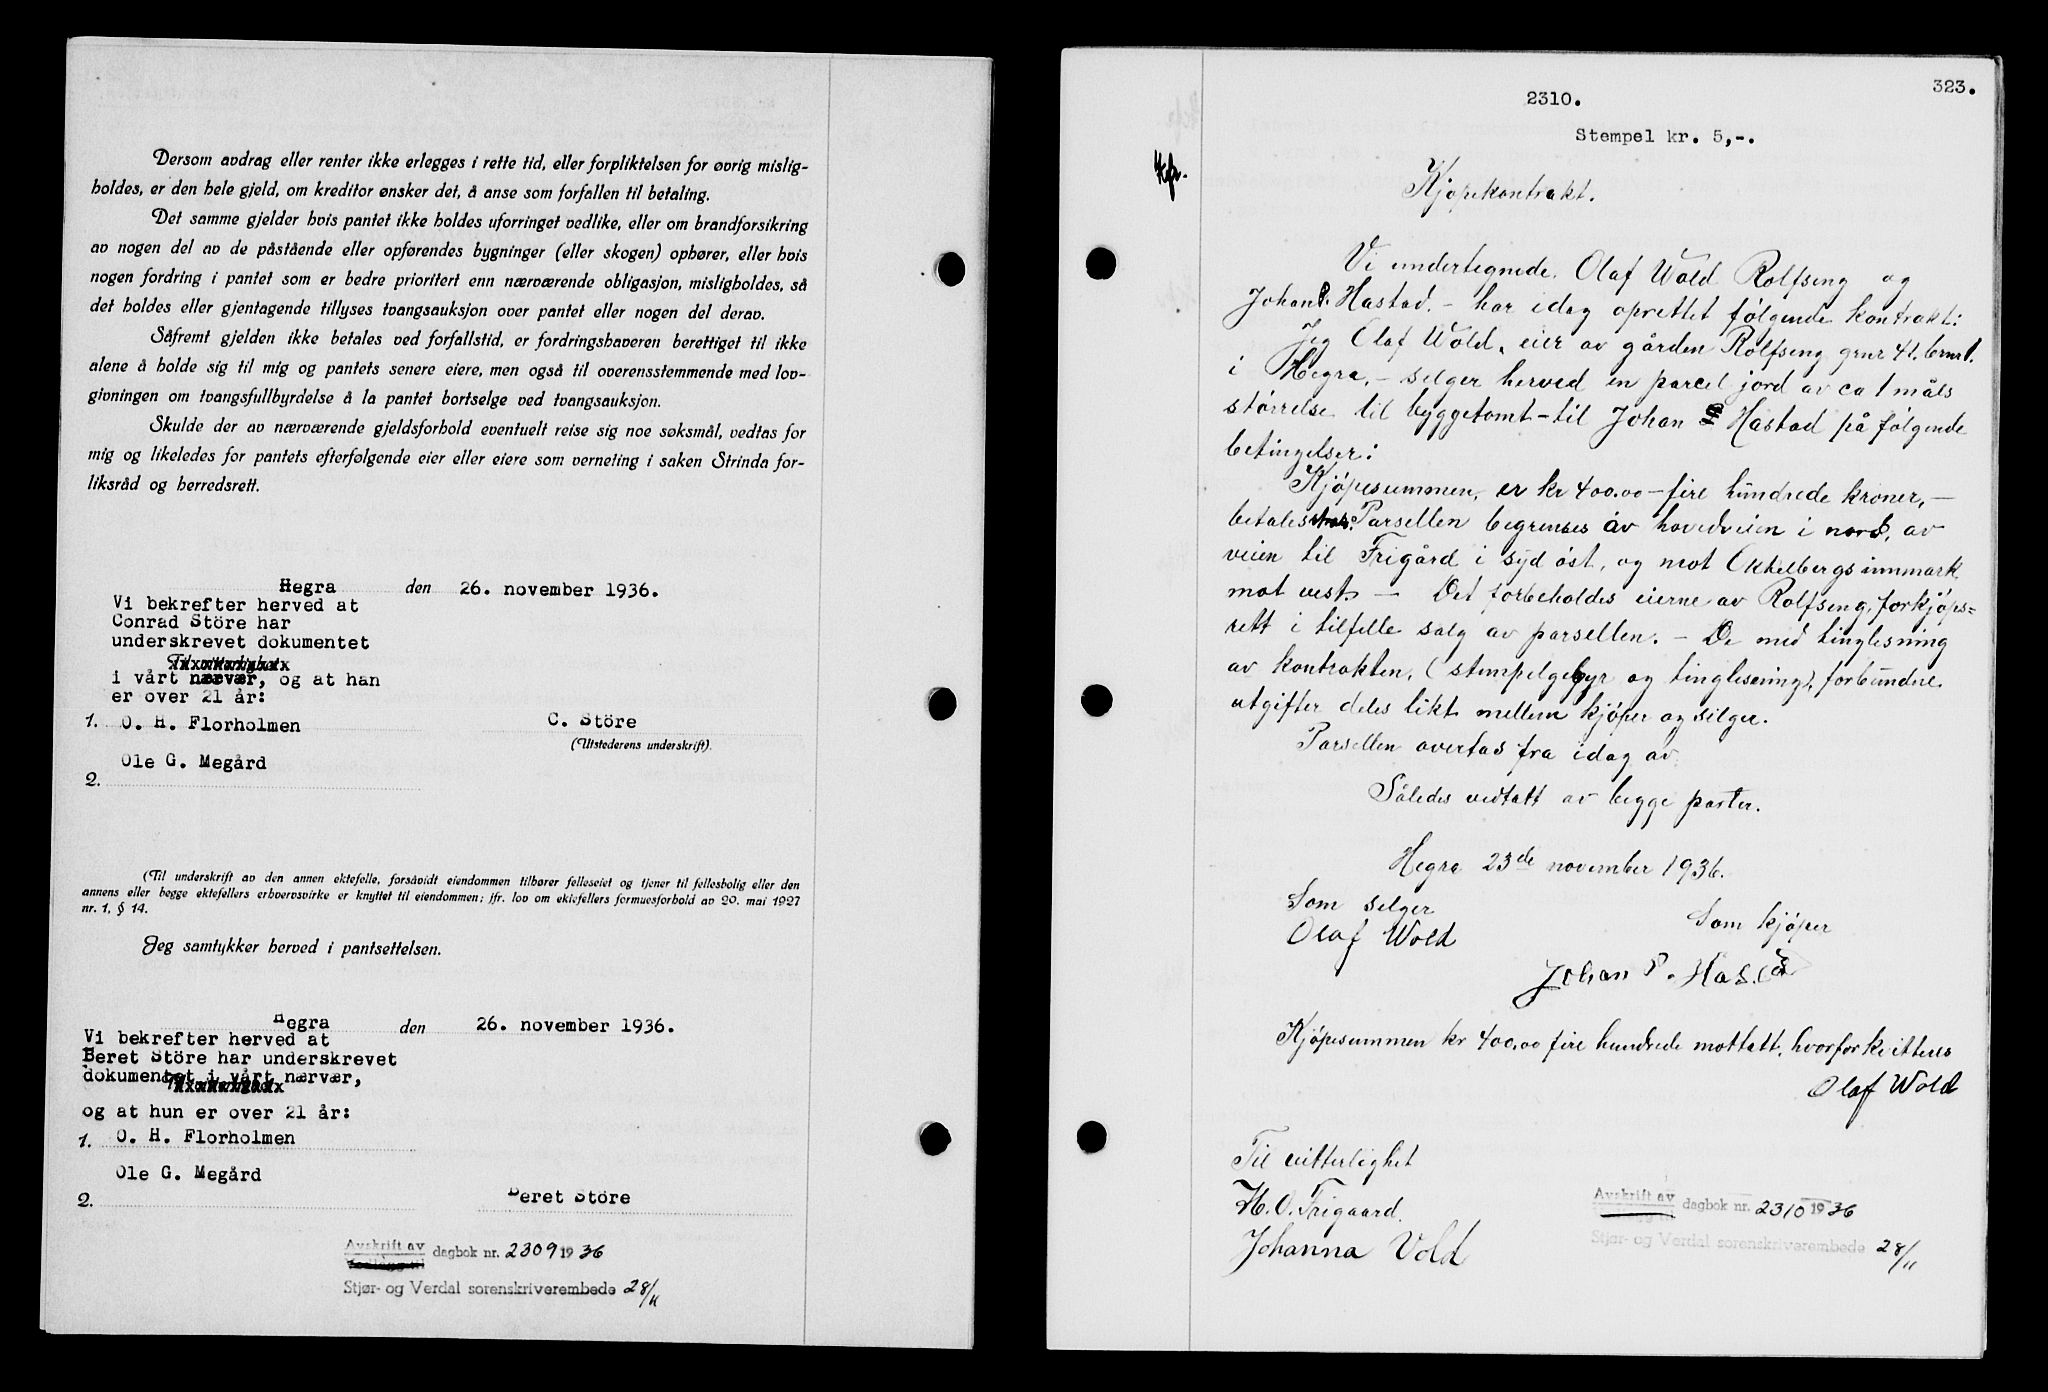 Dersom avdrag eller renter ikke erlegges i rette tid, eller forpliktelsen for øvrig mislig-
holdes, er den hele gjeld, om kreditor ønsker det, å anse som forfallen til betaling.
Det samme gjelder hvis pantet ikke holdes uforringet vedlike, eller om brandforsikring
av nogen del av de påstående eller opførendes bygninger (eller skogen) ophører, eller hvis
nogen fordring i pantet som er bedre prioritert enn nærværende obligasjon, misligholdes, så
det holdes eller gjentagende tillyses tvangsauksjon over pantet eller nogen del derav.
Såfremt gjelden ikke betales ved forfallstid, er fordringshaveren berettiget til ikke
alene å holde sig til mig og pantets senere eiere, men også til overensstemmende med lov-
givningen om tvangsfullbyrdelse å la pantet bortselge ved tvangsauksjon.
Skulde der av nærværende gjeldsforhold eventuelt reise sig noe søksmål, vedtas for
mig og likeledes for pantets efterfølgende eier eller eiere som verneting i saken Strinda for-
liksråd og herredsrett.
Hegra den 26. november 1936.
Vi bekrefter herved at
Conrad Störe har
underskrevet dokumentet
i vårt nærvær, og at han
er over 21 år:
1. O. H. Florholmen
C. Störe
(Utstederens underskrift).
Ole G. Megård
2.
(Til underskrift av den annen ektefelle, forsåvidt eiendommen tilhører felleseiet og tjener til fellesbolig eller den
annens eller begge ektefellers erhvervsvirke er knyttet til eiendommen; jfr. lov om ektefellers formuesforhold av 20. mai 1927
nr. 1, § 14.
Jeg samtykker herved i pantsettelsen.
Hegra den 26. november 1936.
Vi bekrefter herved at
Beret Störe har underskrevet
dokumentet i vårt nærvær,
og at hun er over 21 år:
1. O. H. Florholmen
Ole G. Megård
2.
Beret Störe
Avskrift av dagbok nr. 2309 1936
Stjør- og Verdal sorenskriverembede 28/11
323.
2310.
Stempel kr. 5,-.
Kjp.
Kjøpekontrakt.
Vi undertegnede Olaf Wold Rolfseng og
Johan P. Hastad. - har idag oprettet følgende kontrakt:
Jeg Olaf Wold, eier av gården Rolfseng grnr 41. brnr 1.
i Hegra, - selger herved en parcel jord av ca 1 måls
størrelse til byggetomt - til Johan P Hastad på følgende
betingelser:
Kjøpesummen, er kr 400.00 - fire hundrede kroner, -
betales Parsellen begrenses av hovedveien i nord, av
veien til Frigård i syd øst, og mot Okkelbergs innmark
mot vest. - Det forbeholdes eierne av Rolfseng, forkjøps=
rett i tilfelle salg av parsellen. - De med tinglesning
av kontrakten, (stempelgebyr og tinglesning), forbundne
utgifter deles likt mellem kjøper og selger.
Parsellen overtas fra idag av.
Således vedtatt av begge parter.
Hegra 23de november 1936.
Som selger
Olaf Wold
Som kjøper
Johan P. Hastad
Kjøpesummen kr 400,00 fire hundrede mottatt, hvorfor kvitteres
Olaf Wold
Til vitterlighet
H. O. Frigaard.
Johanna Vold
Avskrift av dagbok nr. 2310 1936
Stjør- og Verdal sorenskriverembede 28/11